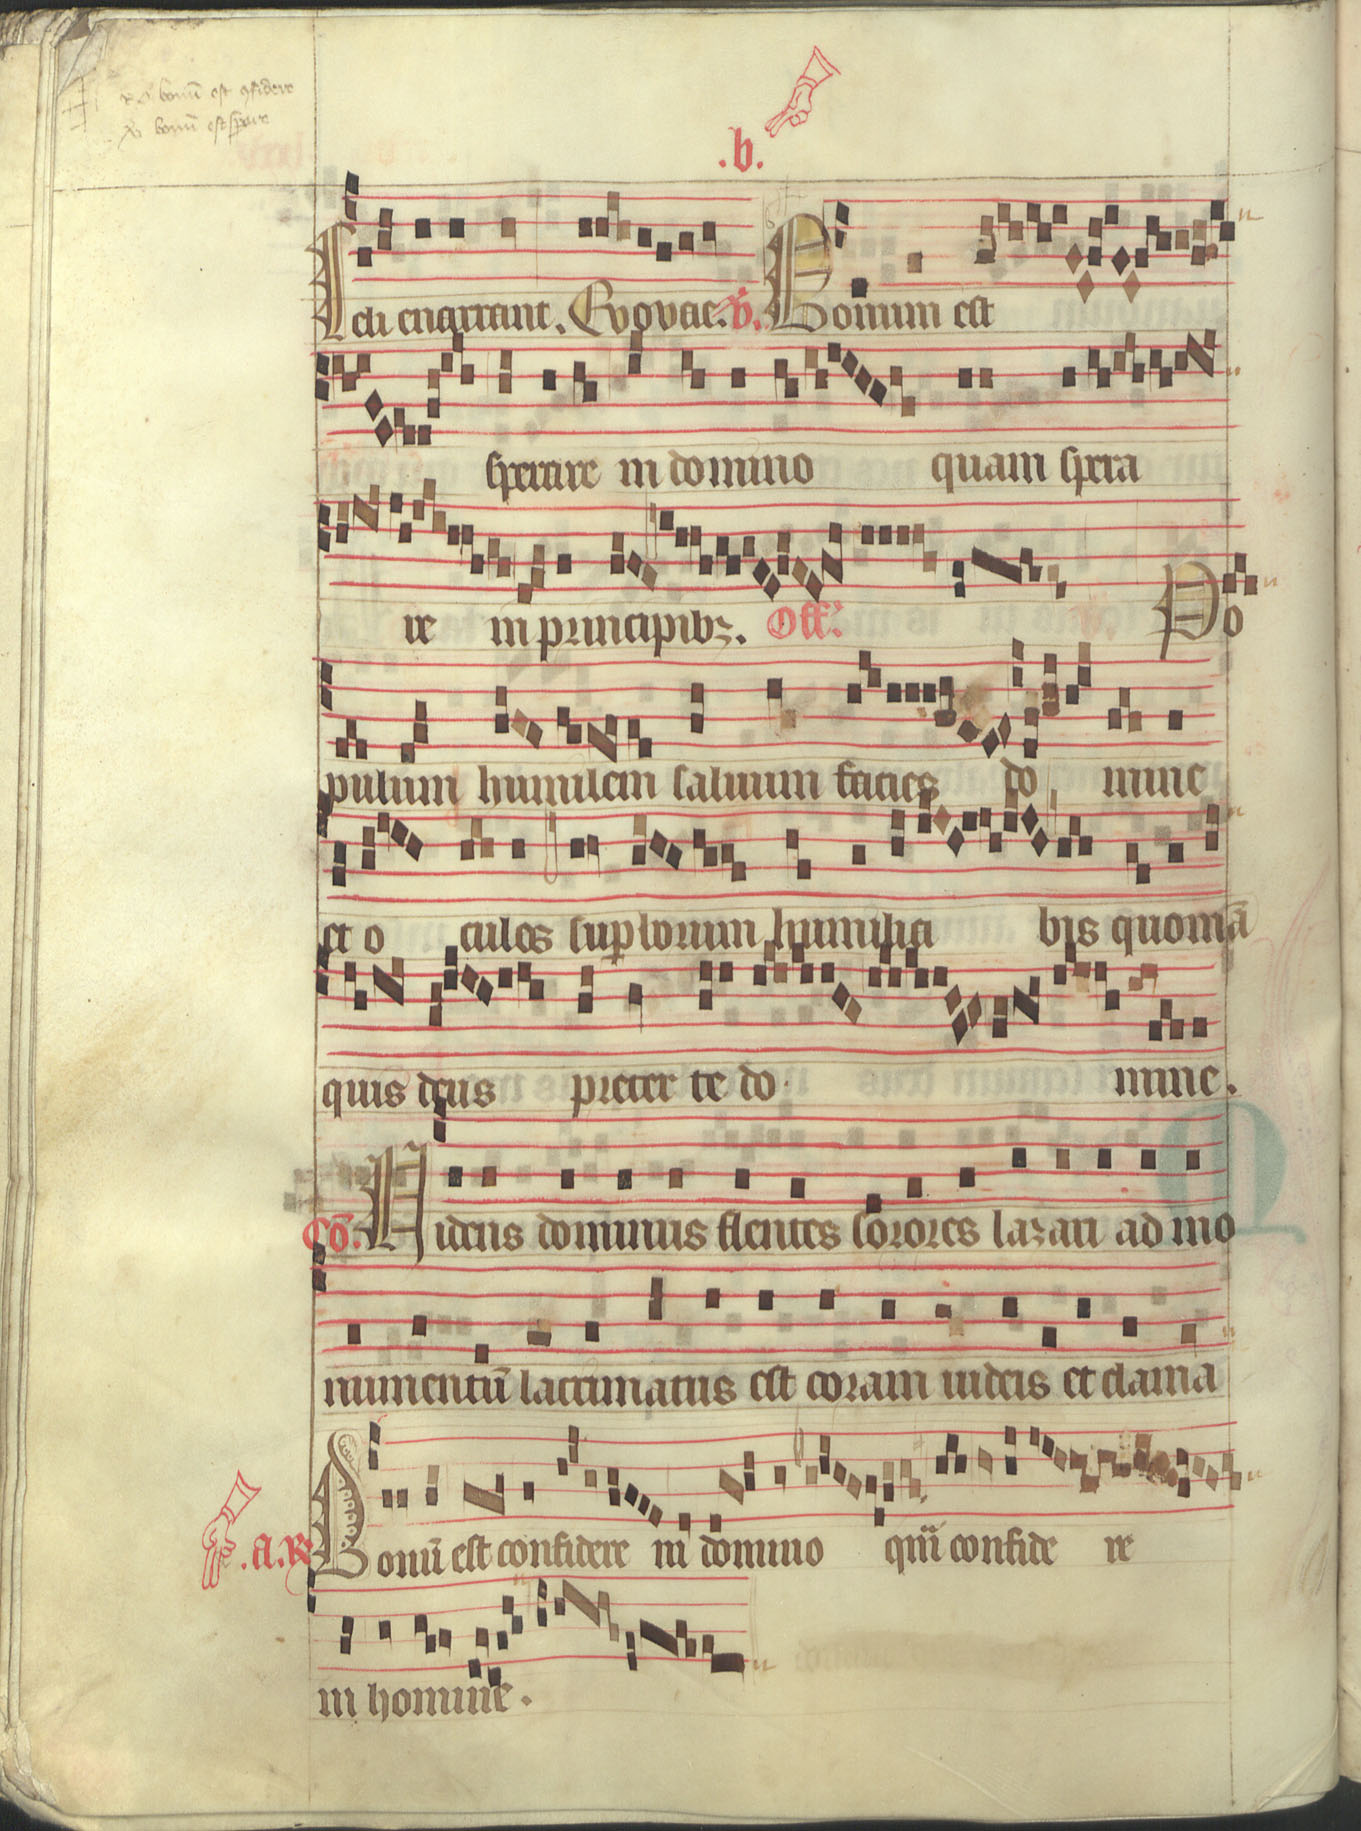 R bonū est ɔfidere
℣ bonū est sperare
.b.
Celi enarrant. Evovae. ℣. Bonum est
sperare in domino quam spera
re in principibꝫ. Off. Po
pulum humilem saluum facies do mine
et o culos supborum humilia bis quoniā
quis deus preter te do mine.
Cō. Uidens dominus flentes sorores lazari ad mo
numentū lacrimatus est coram iudeis et clama
.a. R Bonū est confidere in domino qm̄ confide re
in homine.